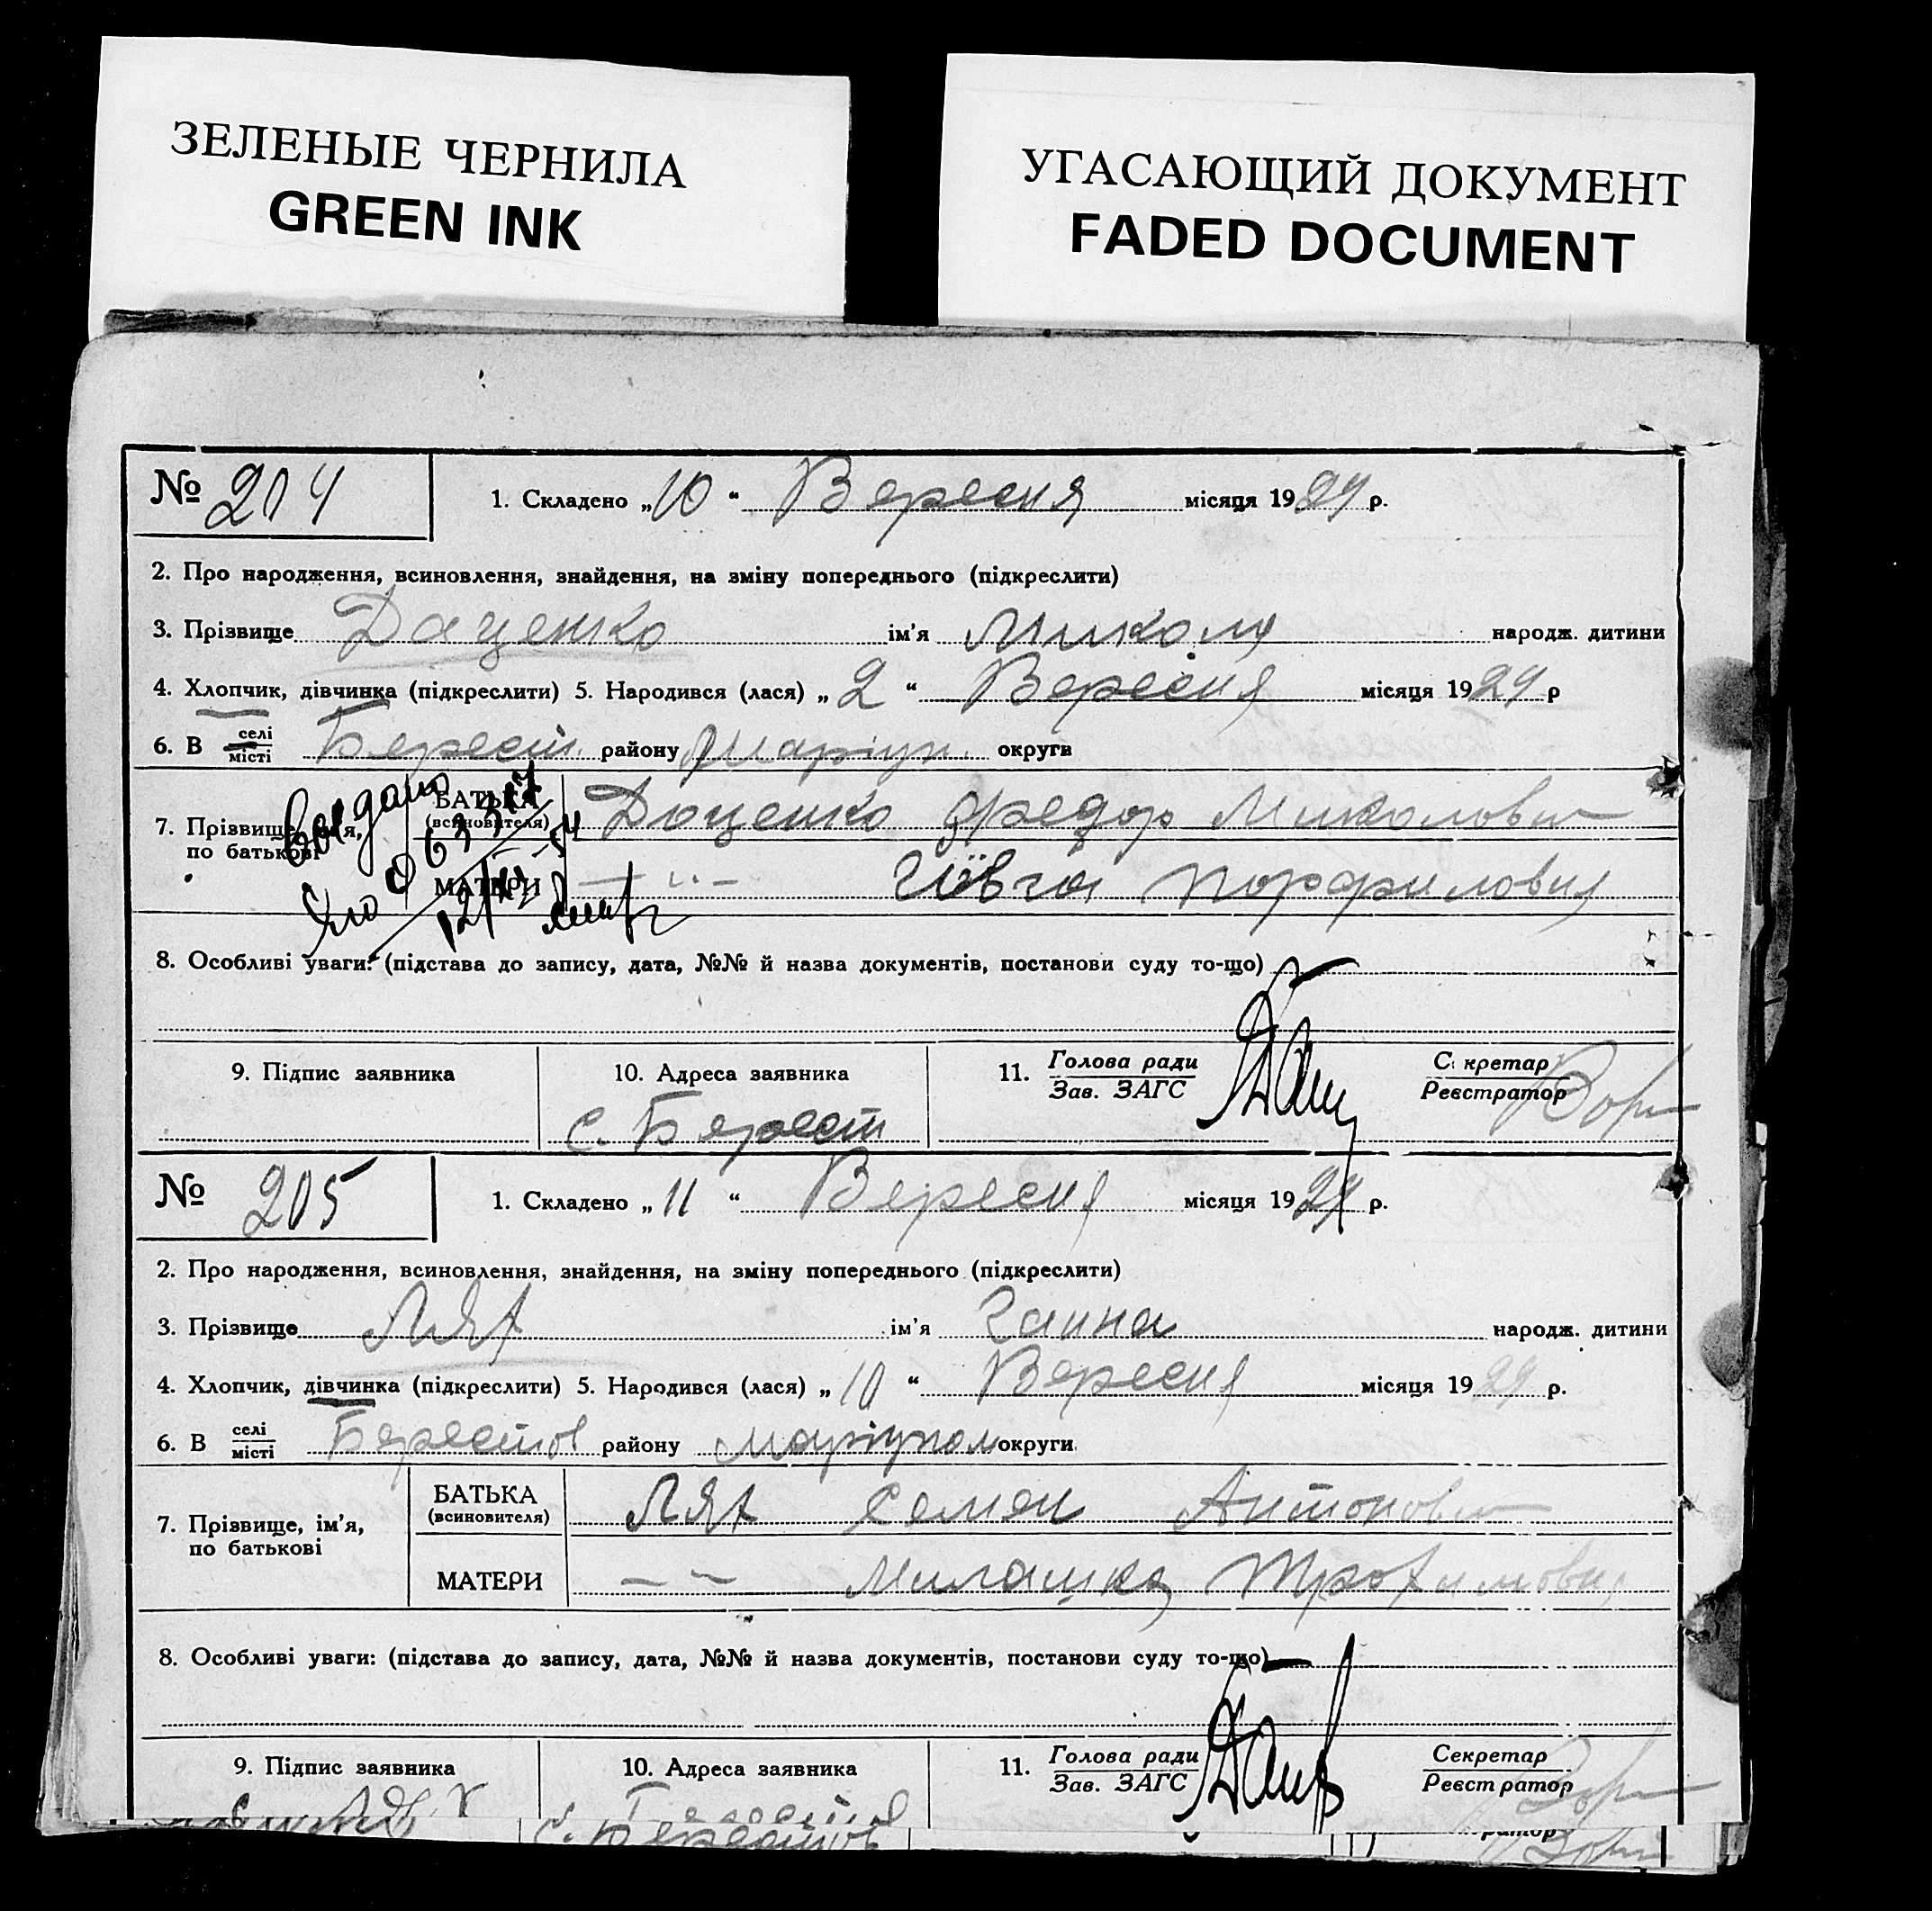 ЗЕЛЕНЫЕ ЧЕРНИЛА
GREEN INK
УГАСАЮЩИЙ ДОКУМЕНТ
FADED DOCUMENT
№ 204 1. Складено „10“ Вересня місяця 1929 р.
2. Про народження, всиновлення, знайдення, на зміну попереднього (підкреслити)
3. Прізвище Доценко ім'я Микола народж. дитини
4. Хлопчик, дівчинка (підкреслити) 5. Народився (лася) „2“ Вересня місяця 1929 р
6. В селі місті Берест. району Маріуп. округи
7. Прізвище, ім'я, по батькові БАТЬКА (всиновителя) Доценко Федор Миколович
МАТЕРИ — " — Гївга Порфиловна
8. Особливі уваги: (підстава до запису, дата, №№ й назва документів, постанови суду то-що)
9. Підпис заявника 10. Адреса заявника 11. Голова ради Зав. ЗАГС Секретар Реєстратор
с. Берест
№ 205 1. Складено „11“ Вересня місяця 1929 р.
2. Про народження, всиновлення, знайдення, на зміну попереднього (підкреслити)
3. Прізвище Лях ім'я Ганна народж. дитини
4. Хлопчик, дівчинка (підкреслити) 5. Народився (лася) „10“ Вересня місяця 1929 р.
6. В селі місті Берестов району Маріупол округи
7. Прізвище, ім'я, по батькові БАТЬКА (всиновителя) Лях Семен Антонович
МАТЕРИ — " — Милашка Трохимовна
8. Особливі уваги: (підстава до запису, дата, №№ й назва документів, постанови суду то-що)
9. Підпис заявника 10. Адреса заявника 11. Голова ради Зав. ЗАГС Секретар Реєстратор
с. Берестов